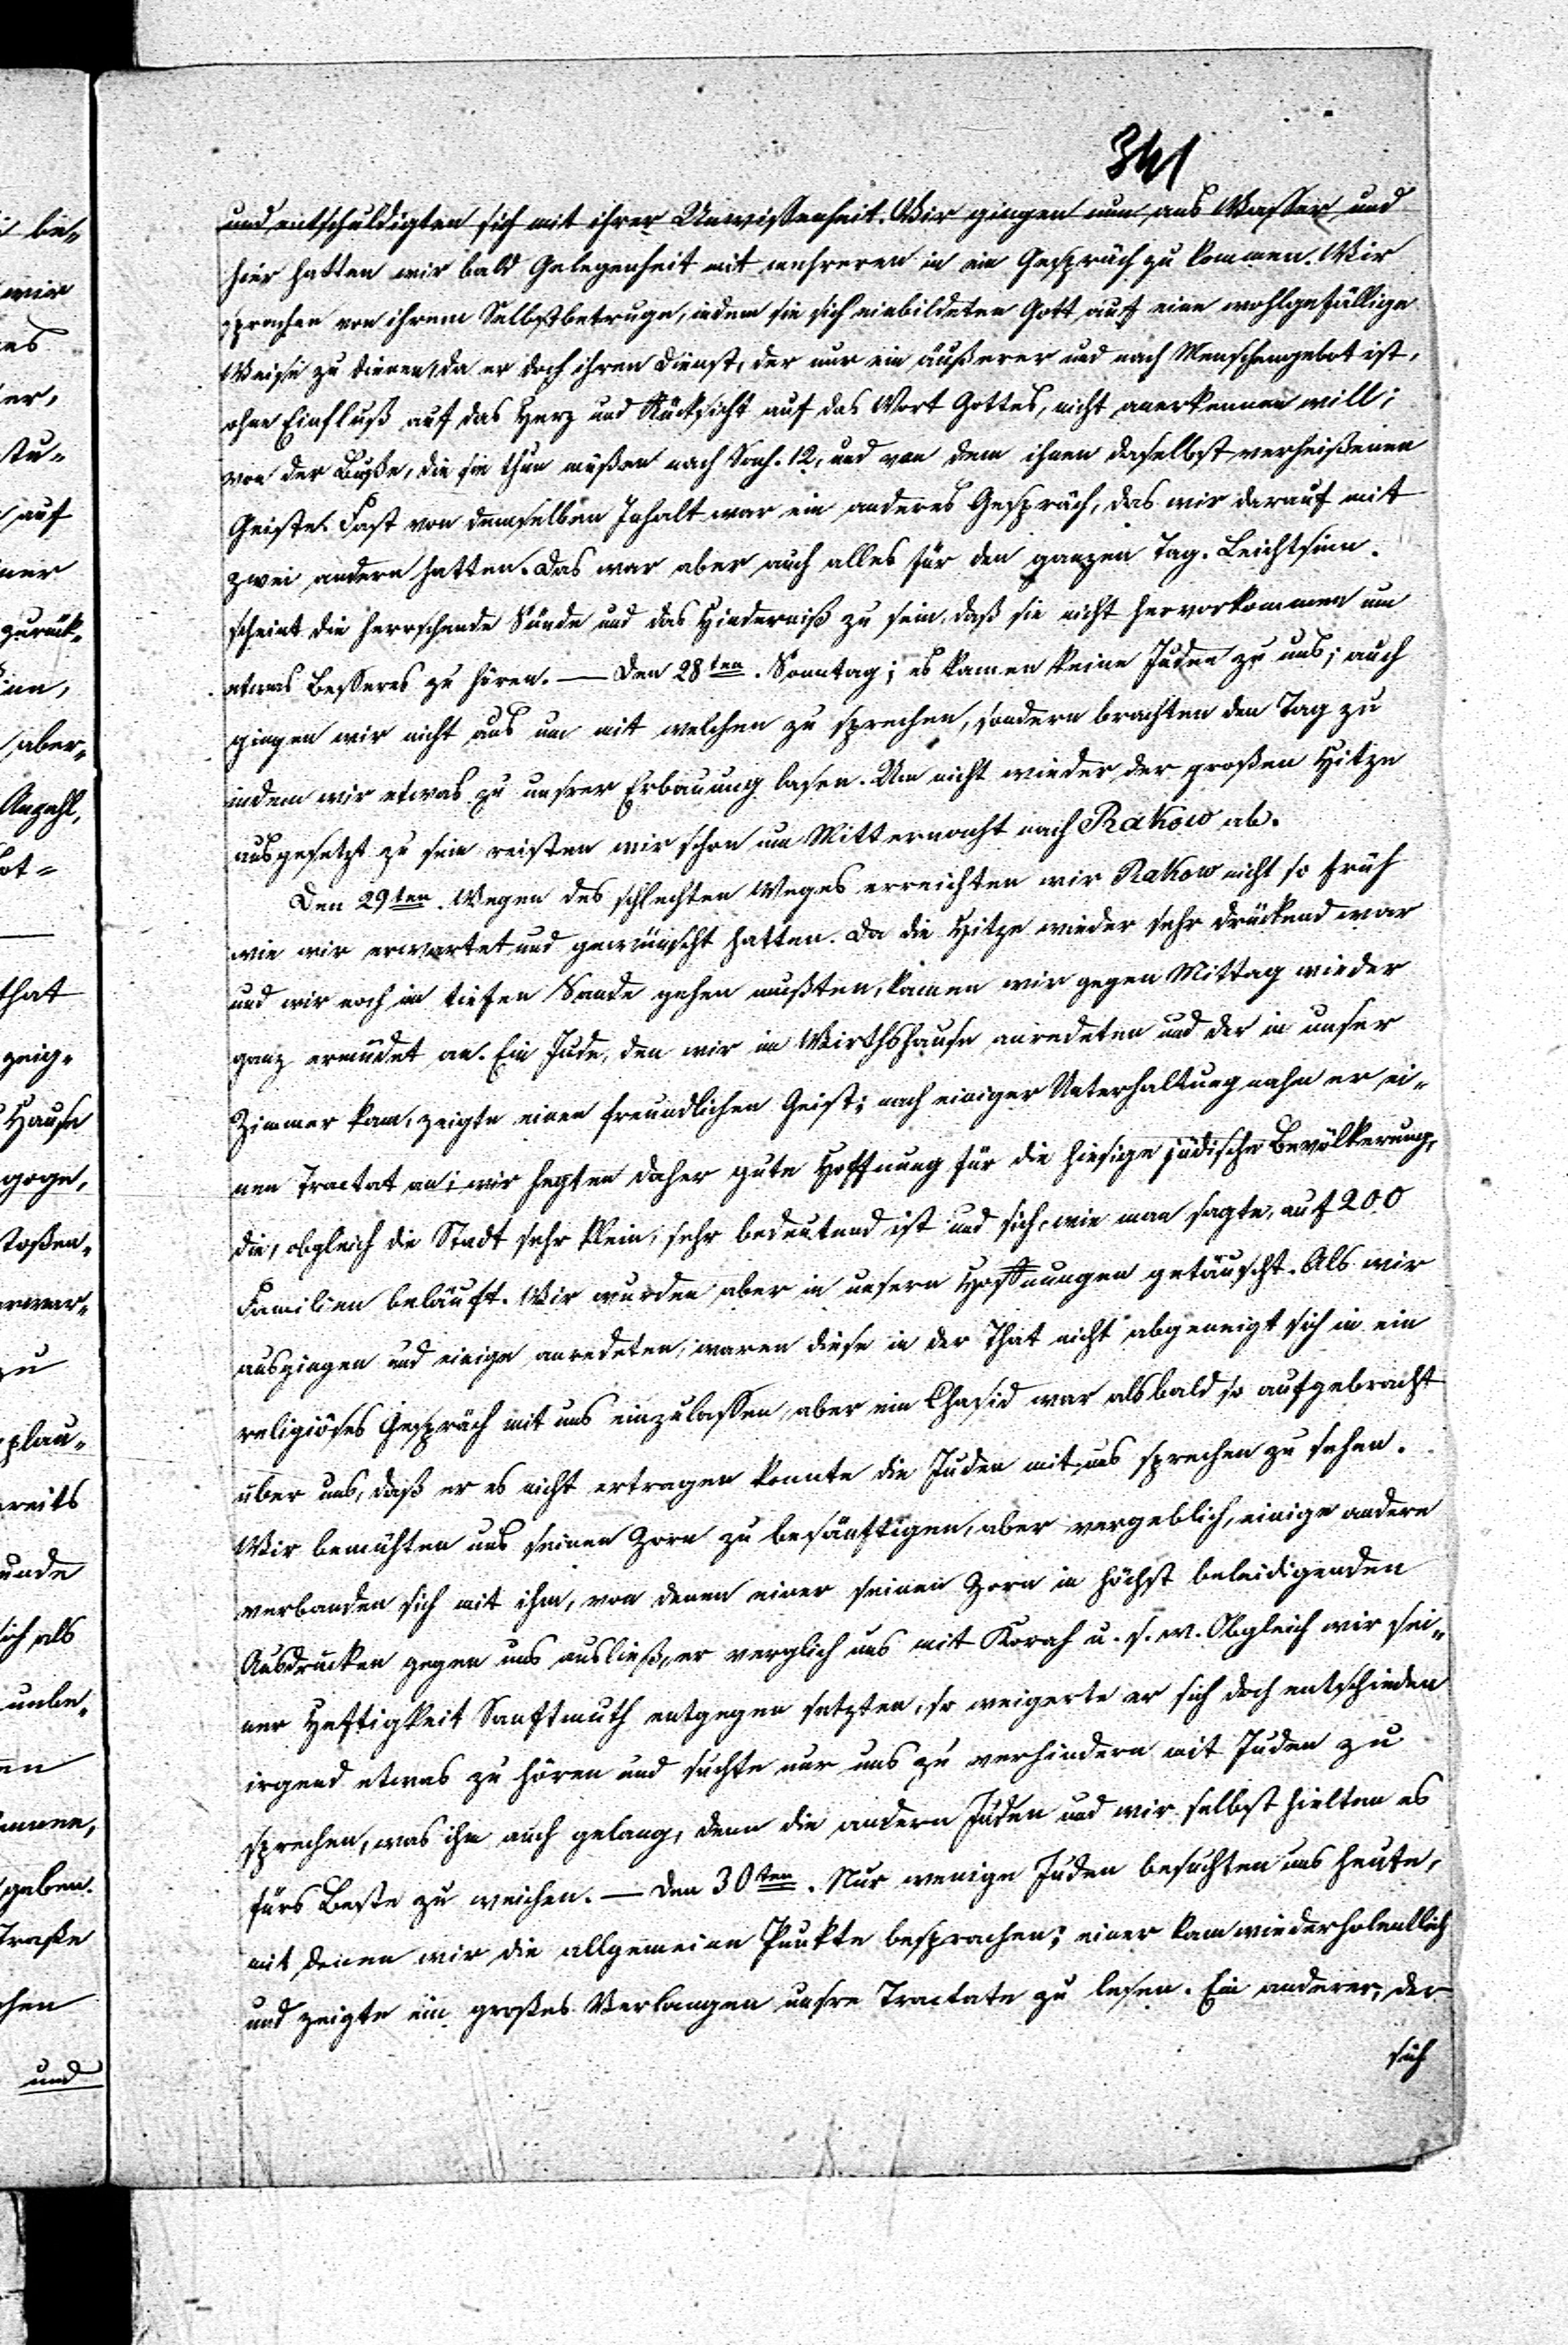 341
und entschuldigten sich mit ihrer Unwissenheit. Wir gingen nun ans Wasser und
hier hatten wir bald Gelegenheit mit mehreren in ein Gespräch zu kommen. Wir
sprachen von ihrem Selbstbetruge, indem sie sich einbildeten Gott auf eine wohlgefällige
Weise zu dienen, da er doch ihren Dienst, der nur ein äußerer und nach Menschengebot ist,
ohne Einfluß auf das Herz und Rücksicht auf das Wort Gottes, nicht anerkennen will;
von der Buße, die sie thun müßen nach Sach. 12, und von dem ihnen daselbst verheißenen
Geiste. Fast von demselben Inhalt war ein anderes Gespräch, das wir darauf mit
zwei andern hatten. Das war aber auch alles für den ganzen Tag. Leichtsinn
scheint die herrschende Sünde und das Hinderniß zu sein, daß sie nicht hervorkommen um
etwas Besseres zu hören. — Den 28ten. Sonntag; es kamen keine Juden zu uns; auch
gingen wir nicht aus um mit welchen zu sprechen, sondern brachten den Tag zu
indem wir etwas zu unsrer Erbauung lasen. Um nicht wieder der großen Hitze
ausgesetzt zu sein reisten wir schon um Mitternacht nach Rakow ab.
Den 29ten. Wegen des schlechten Weges erreichten wir Rakow nicht so früh
wie wir erwartet und gewünscht hatten. Da die Hitze wieder sehr drückend war
und wir noch im tiefen Sande gehen mußten, kamen wir gegen Mittag wieder
ganz ermüdet an. Ein Jude, den wir im Wirthshause anredeten und der in unser
Zimmer kam, zeigte einen freundlichen Geist; nach einiger Unterhaltung nahm er ei-
nen Tractat an; wir hegten daher gute Hoffnung für die hiesige jüdische Bevölkerung,
die, obgleich die Stadt sehr klein, sehr bedeutend ist und sich, wie man sagte, auf 200
Familien beläuft. Wir wurden aber in unsern Hoffnungen getäuscht. Als wir
ausgingen und einige anredeten, waren diese in der That nicht abgeneigt sich in ein
religiöses Gespräch mit uns einzulassen, aber ein Chasid war alsbald so aufgebracht
über uns, daß er es nicht ertragen konnte die Juden mit uns sprechen zu sehen.
Wir bemühten uns seinen Zorn zu besänftigen, aber vergeblich, einige andere
verbanden sich mit ihm, von denen einer seinen Zorn in höchst beleidigenden
Ausdrucken gegen uns ausließ, er verglich uns mit Korah u. s. w. Obgleich wir sei-
ner Heftigkeit Sanftmuth entgegen setzten, so weigerte er sich doch entschieden
irgend etwas zu hören und suchte nur uns zu verhindern mit Juden zu
sprechen, was ihm auch gelang, denn die andern Juden und wir selbst hielten es
fürs Beste zu weichen. — Den 30ten. Nur wenige Juden besuchten uns heute,
mit denen wir die allgemeinen Punkte besprachen; einer kam wiederholentlich
und zeigte ein großes Verlangen unsre Tractate zu lesen. Ein anderer, der
sich